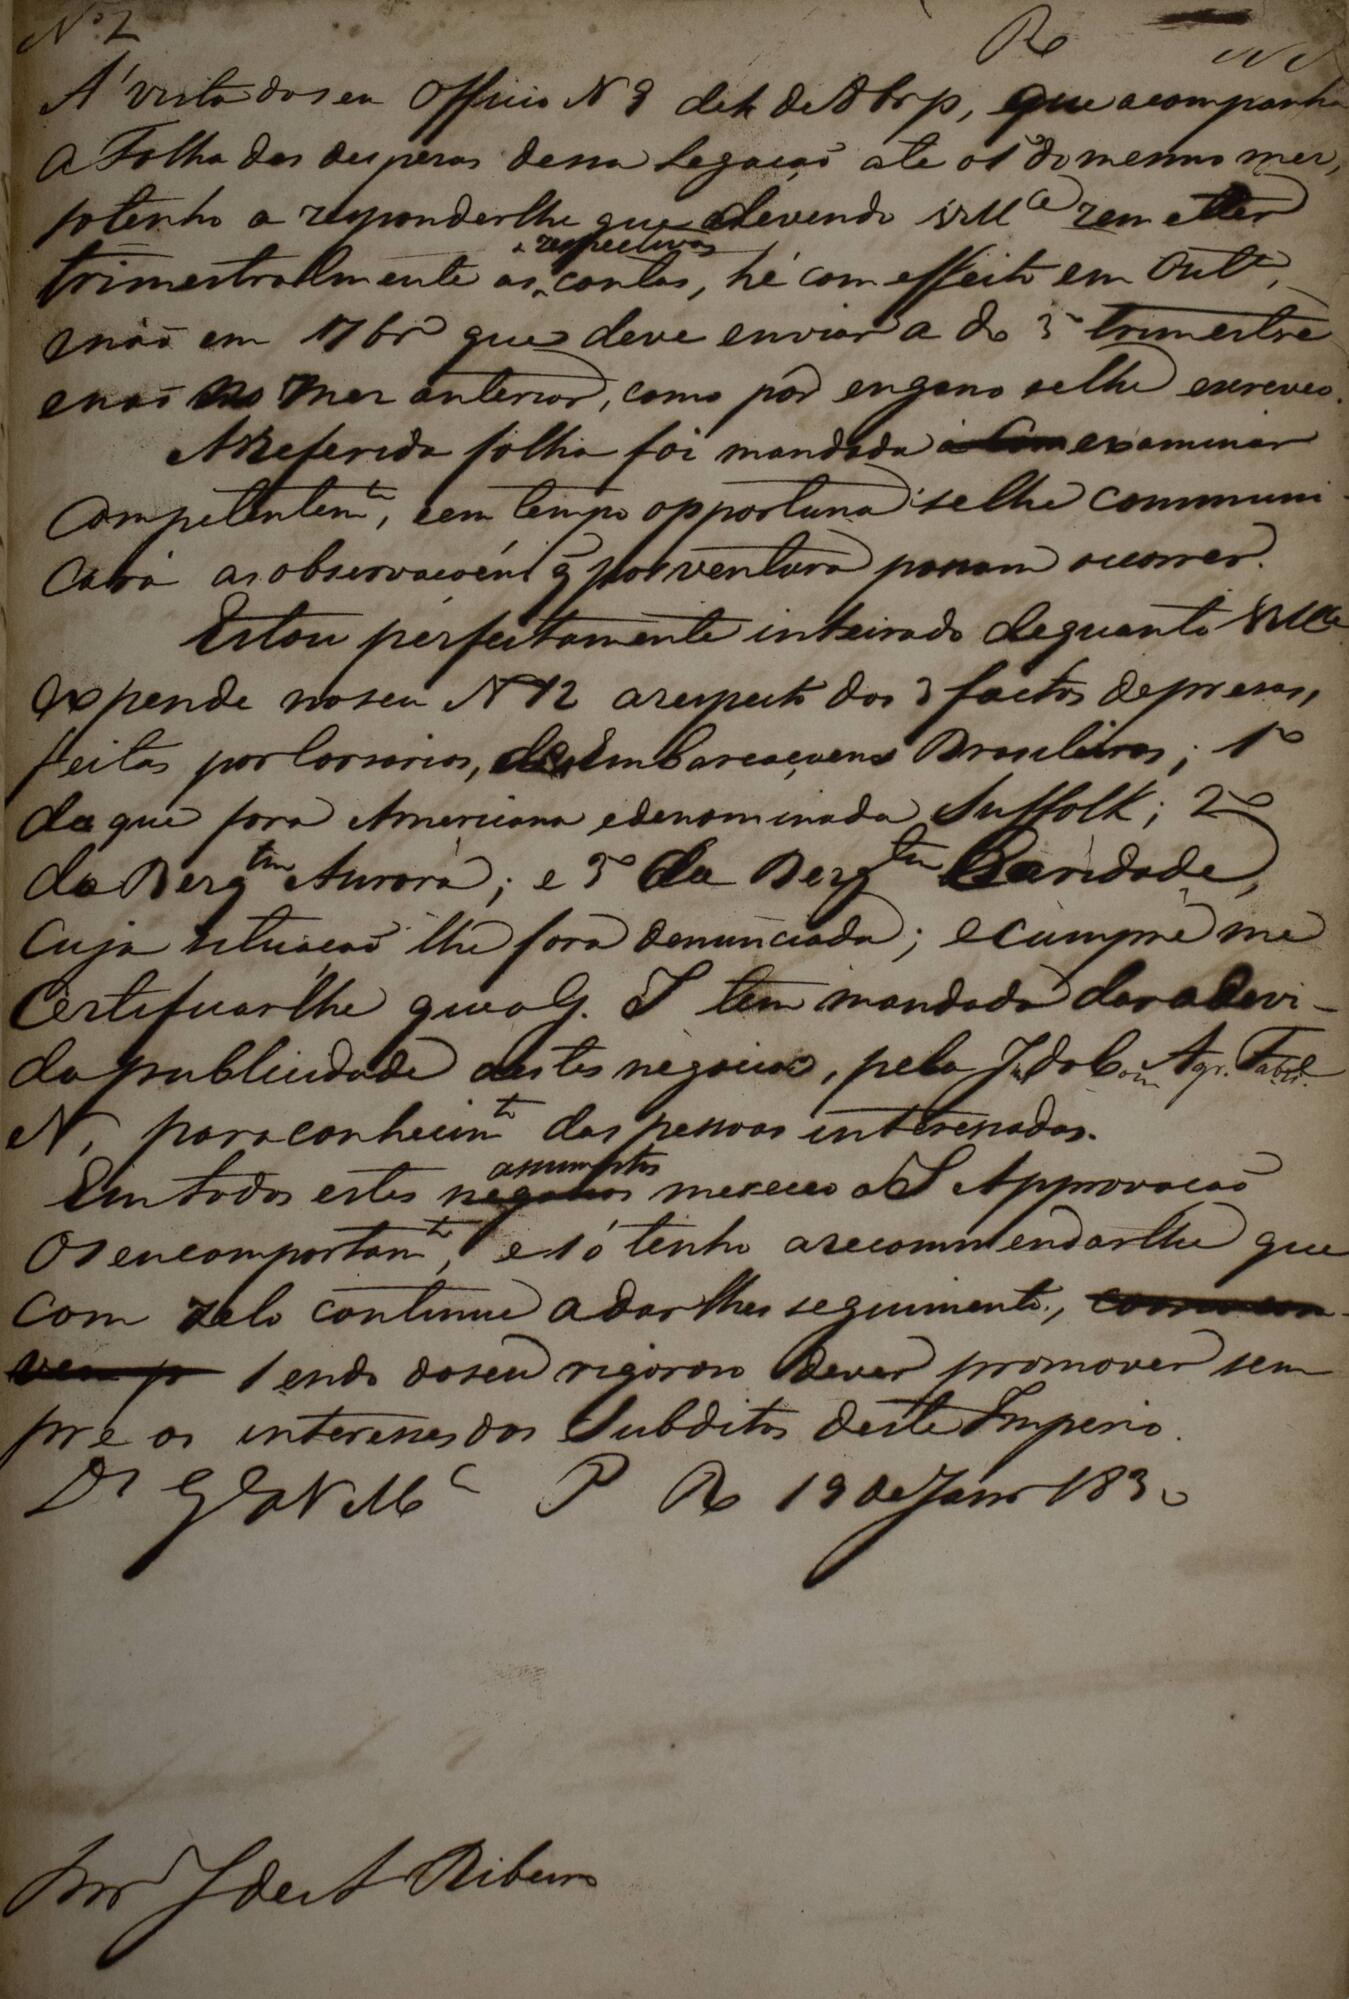 Nº 2
R
Á vista do seu Officio N 9 de de 8br p, que acompanha
a Folha das despezas dessa Legação até o 1º do mesmo mez,
so tenho a responderlhe que devendo VMce remetter
respectivas
trimestralmente as contas, hé com effeito em Outº,
e não em 7brº que deve enviar a do 3º trimestre
e não no mez anterior, como por engano se lhe escreveo.
A Referida folha foi mandada examinar
competentemte, e em tempo opportuno se lhe communi-
cará as observaçoens q̃ por ventura possam occorrer.
Estou perfeitamente inteirado de quanto VMce
expende no seu N 12 a respeito dos 3 factos de presas,
feitas por Corsarios, de Embarcaçoens Brasileiras; 1º
da que fora Americana e denominada Suffolk; 2º
da Bergtm Aurora; e 3º da Bergtm Caridade,
cuja situação lhe fora denunciada; e cumpre me
certificarlhe que o G. I tem mandado dar a devi-
da publicidade a estes negocios, pela J. do Com Agr. Fabr.
N, para conhecimto das pessoas interessadas.
assumptos
Em todos estes negocios mereceo a I Approvação
o seu comportamto, e só tenho a recommendarlhe que
com zelo continue a dar lhes seguimento, como con-
vem p sendo do seu rigoroso dever promover sem
pre os interesses dos Subditos deste Imperio.
Ds Gde a VMce P R 19 de Janro 1830
Snr J de A Ribeiro